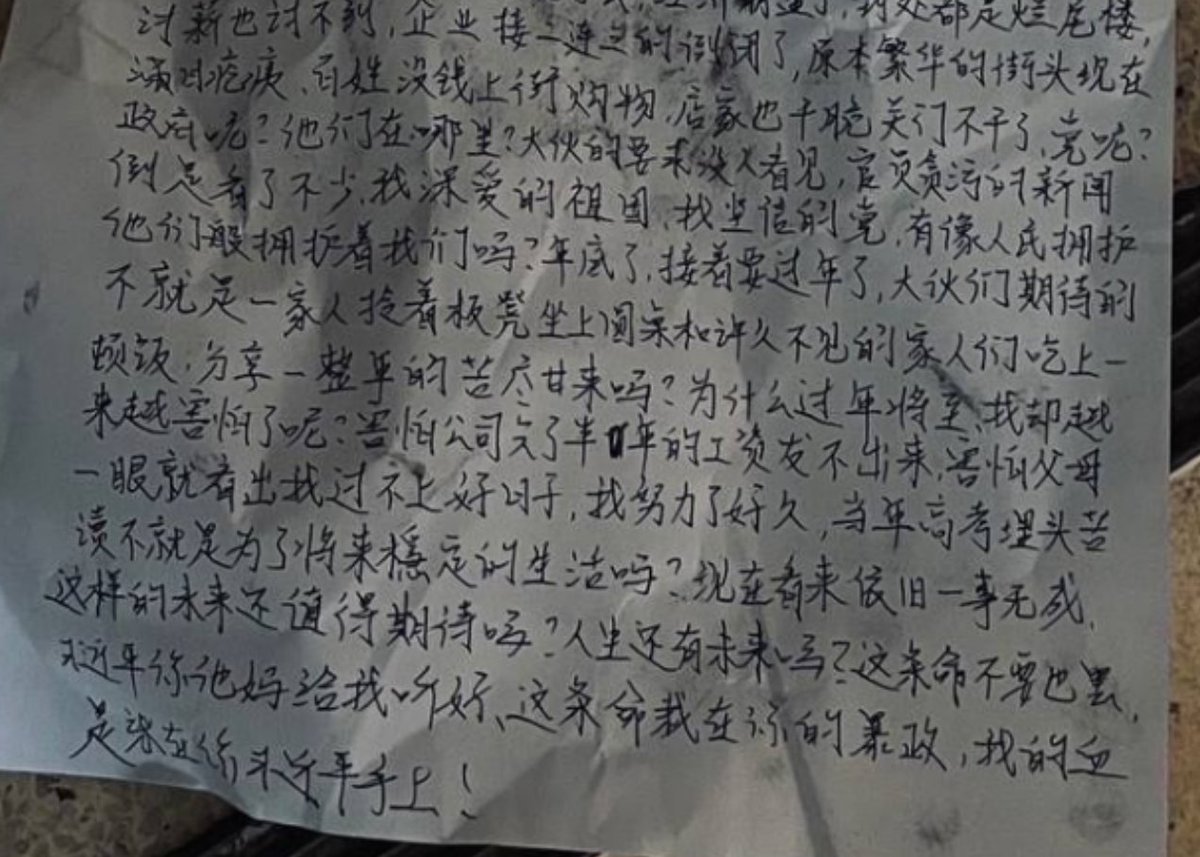 经济崩盘了,到处都是烂尾楼,
讨薪也讨不到,企业接二连三的倒闭了,原本繁华的街头现在
满目疮痍、百姓没钱上街购物,店家也干脆关门不干了,党呢?
政府呢?他们在哪里?大伙的要求没人看见,官员贪污的新闻
倒是看了不少,我深爱的祖国,我坚信的党,有像人民拥护
他们般拥护着我们吗?年底了,接着要过年了,大伙们期待的
不就是一家人拎着板凳坐上圆桌和许久不见的家人们吃上一
顿饭,分享一整年的苦尽甘来吗?为什么过年将至,我却越
来越害怕了呢?害怕公司欠了半年的工资发不出来,害怕父母
一眼就看出我过不上好日子,我努力了好久,当年高考埋头苦
读不就是为了将来穩定的生活吗?现在看来依旧一事无成,
这样的未来还值得期待吗?人生还有未来吗?这条命不要也罢,
习近平你他妈给我听好、这条命栽在你的暴政,我的血
是染在你习近平手上!